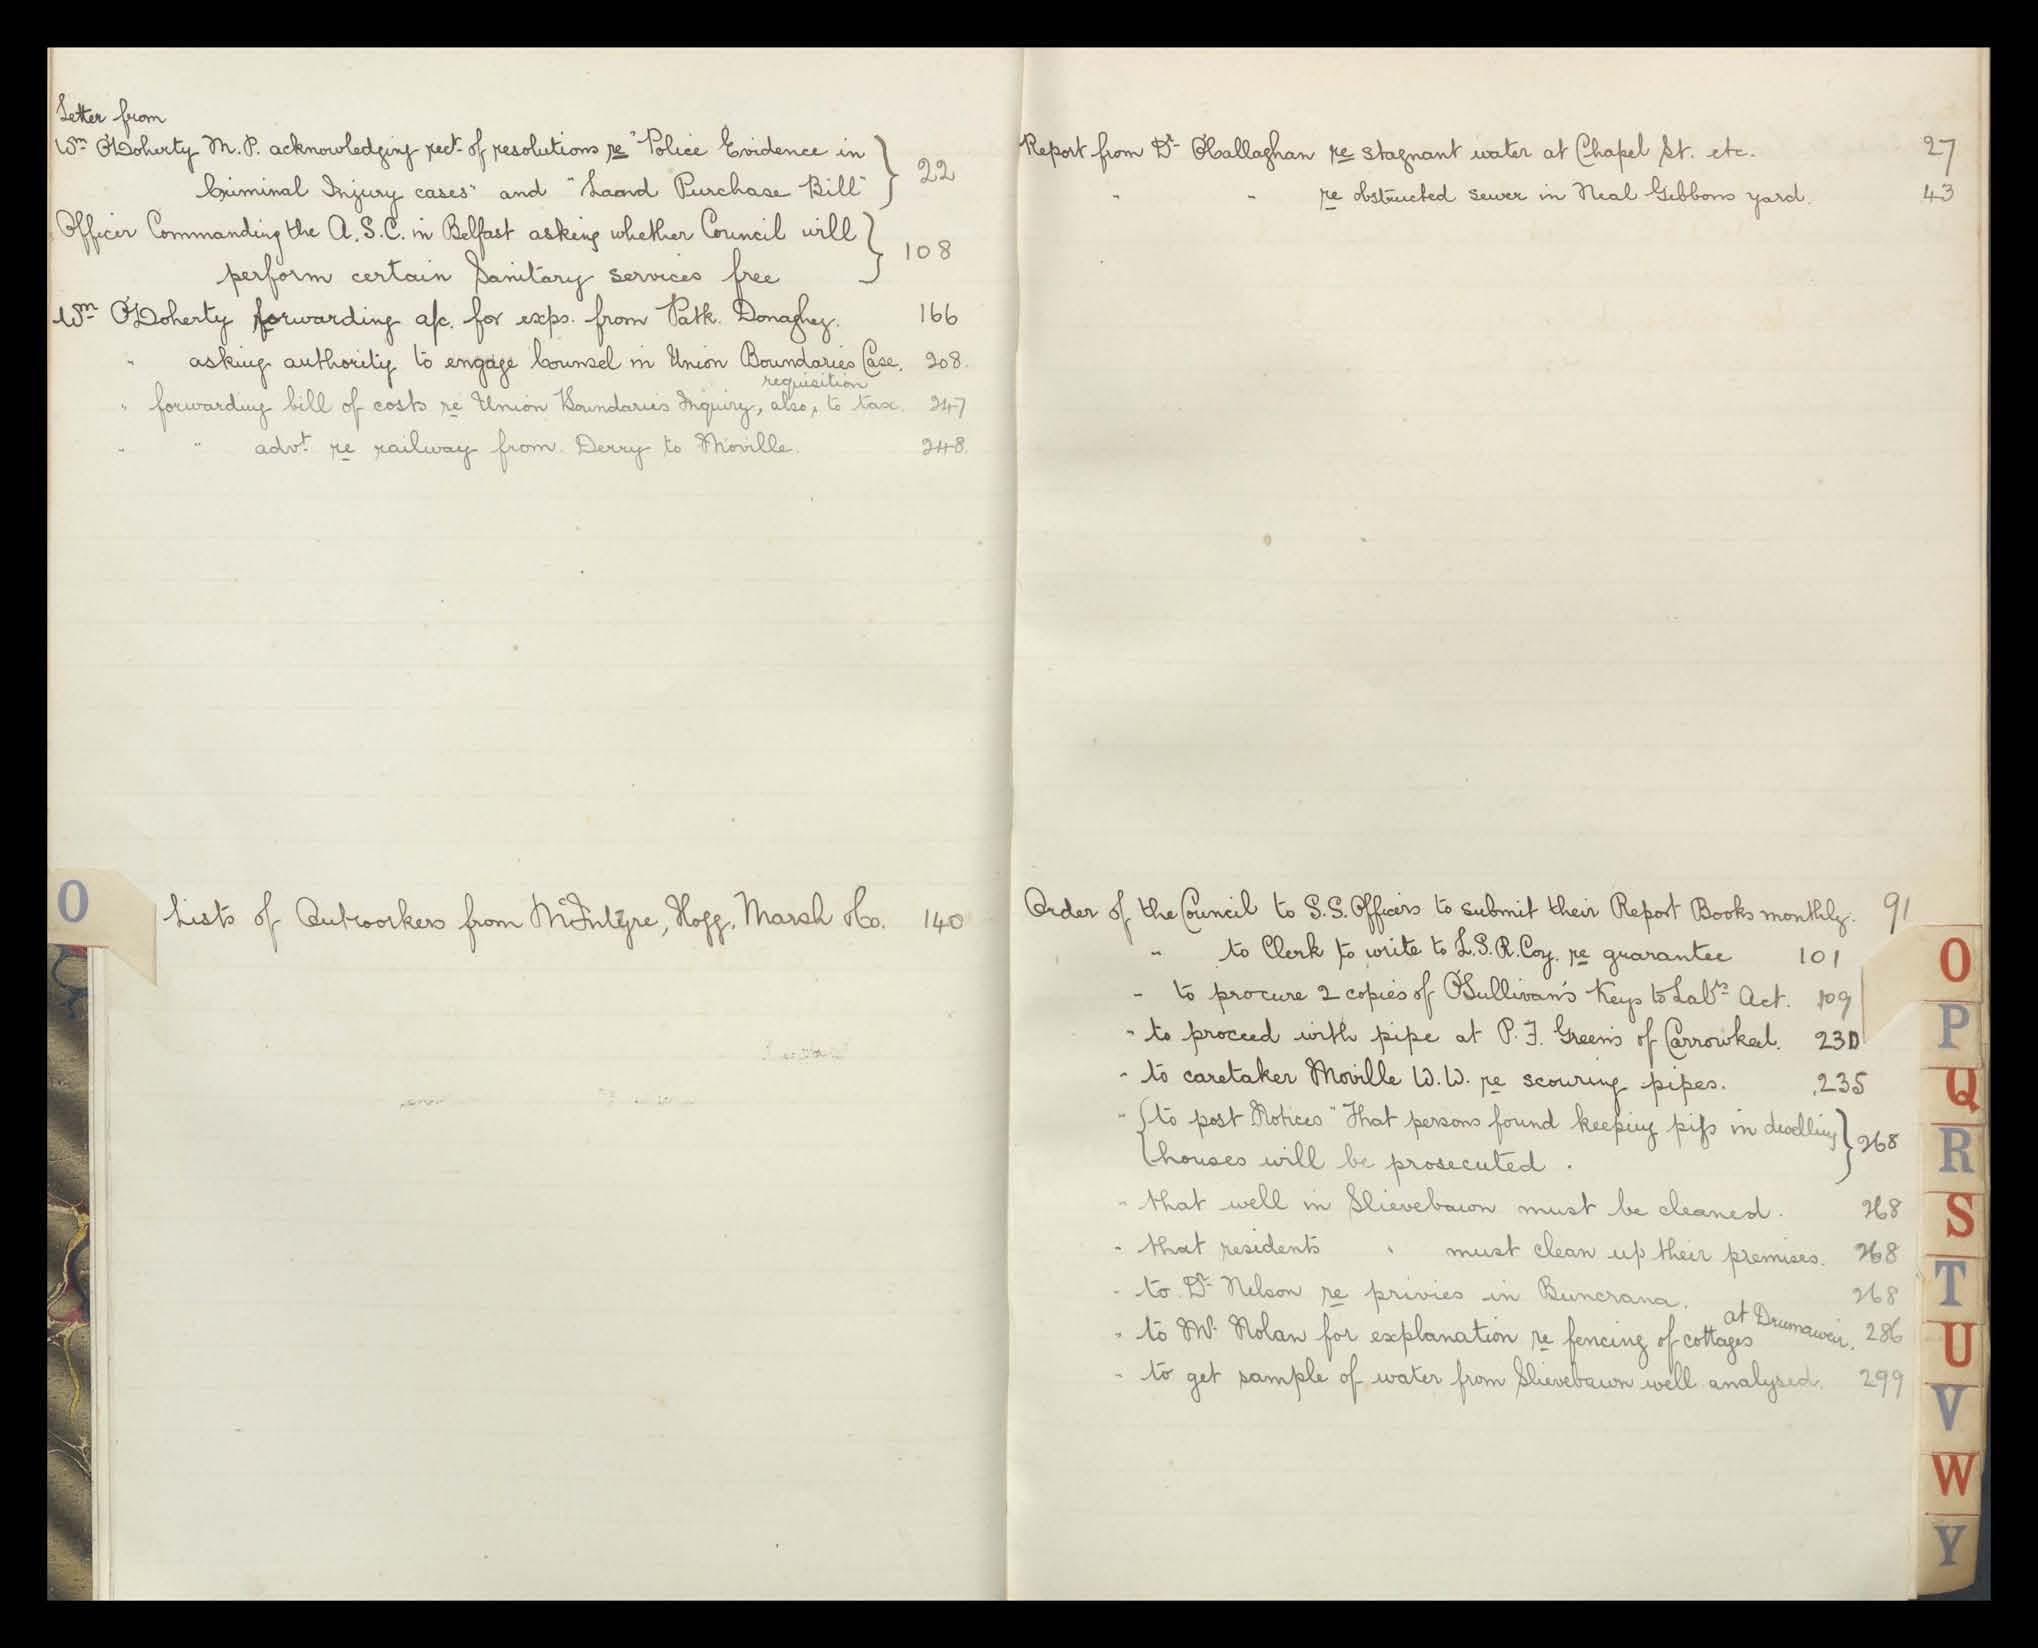 Letter from
Wm O'Doherty M.P. acknowledging rect. of resolutions re "Police Evidence in
Criminal Injury cases" and "Laand Purchase Bill" } 22
Officer Commanding the A.S.C. in Belfast asking whether Council will
perform certain Sanitary services free } 108
Wm O'Doherty forwarding a/c. for exps. from Patk. Donaghey. 166
" asking authority to engage Counsel in Union Boundaries Case. 208.
requisition
" forwarding bill of costs re Union Boundaries Inquiry, also, to tax. 247
" " advt. re railway from Derry to Moville. 248.
O
Lists of Outworkers from McIntyre, Hogg, Marsh & Co. 140
Report from Dr O'Callaghan re stagnant water at Chapel St. etc. 27
" " re obstructed sewer in Neal Gibbons yard. 43
Order of the Council to S.S. Officers to submit their Report Books monthly. 91
" to Clerk to write to L.S.R. Coy. re guarantee 101
" to procure 2 copies of O'Sullivan's Keys to Labrs Act. 109
" to proceed with pipe at P. F. Green's of Carrowkeel. 230
" to caretaker Moville W.W. re scouring pipes. 235
" { to post Notices "That persons found keeping pigs in dwelling
houses will be prosecuted. } 268
" that well in Slievebawn must be cleaned. 268
" that residents " must clean up their premises. 268
" to Dr Nelson re privies in Buncrana. 268
" to Mr. Nolan for explanation re fencing of cottages at Drumaweir. 286
" to get sample of water from Slievebawn well analysed. 299
O
P
Q
R
S
T
U
V
W
Y